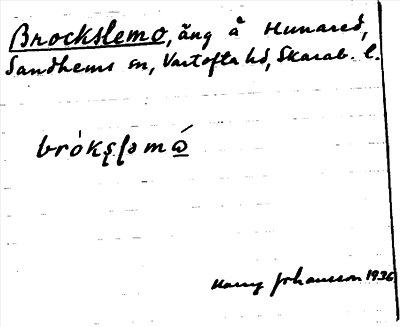 Brockslemo, äng å Hunared,
Sandhems sn, Vartofta hd, Skarab. l.
brókʂļəmɷ́
Harry Johansson 1936